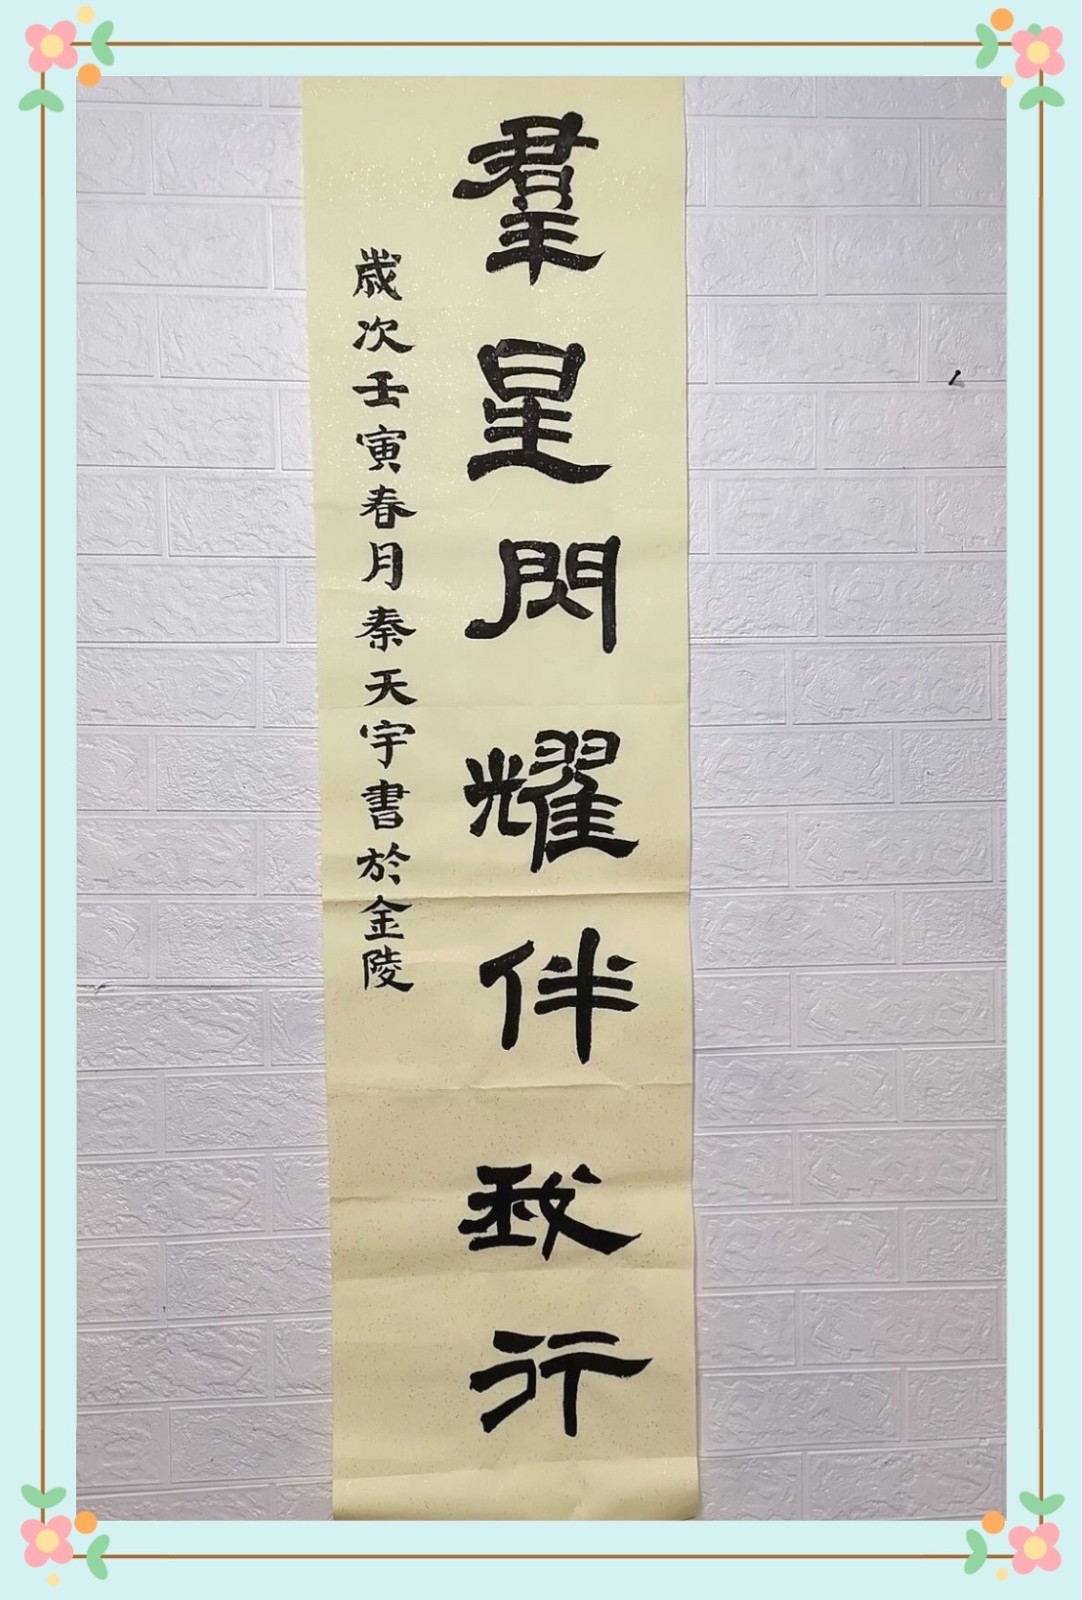 羣星閃耀伴我行
歲次壬寅春月秦天宇書於金陵